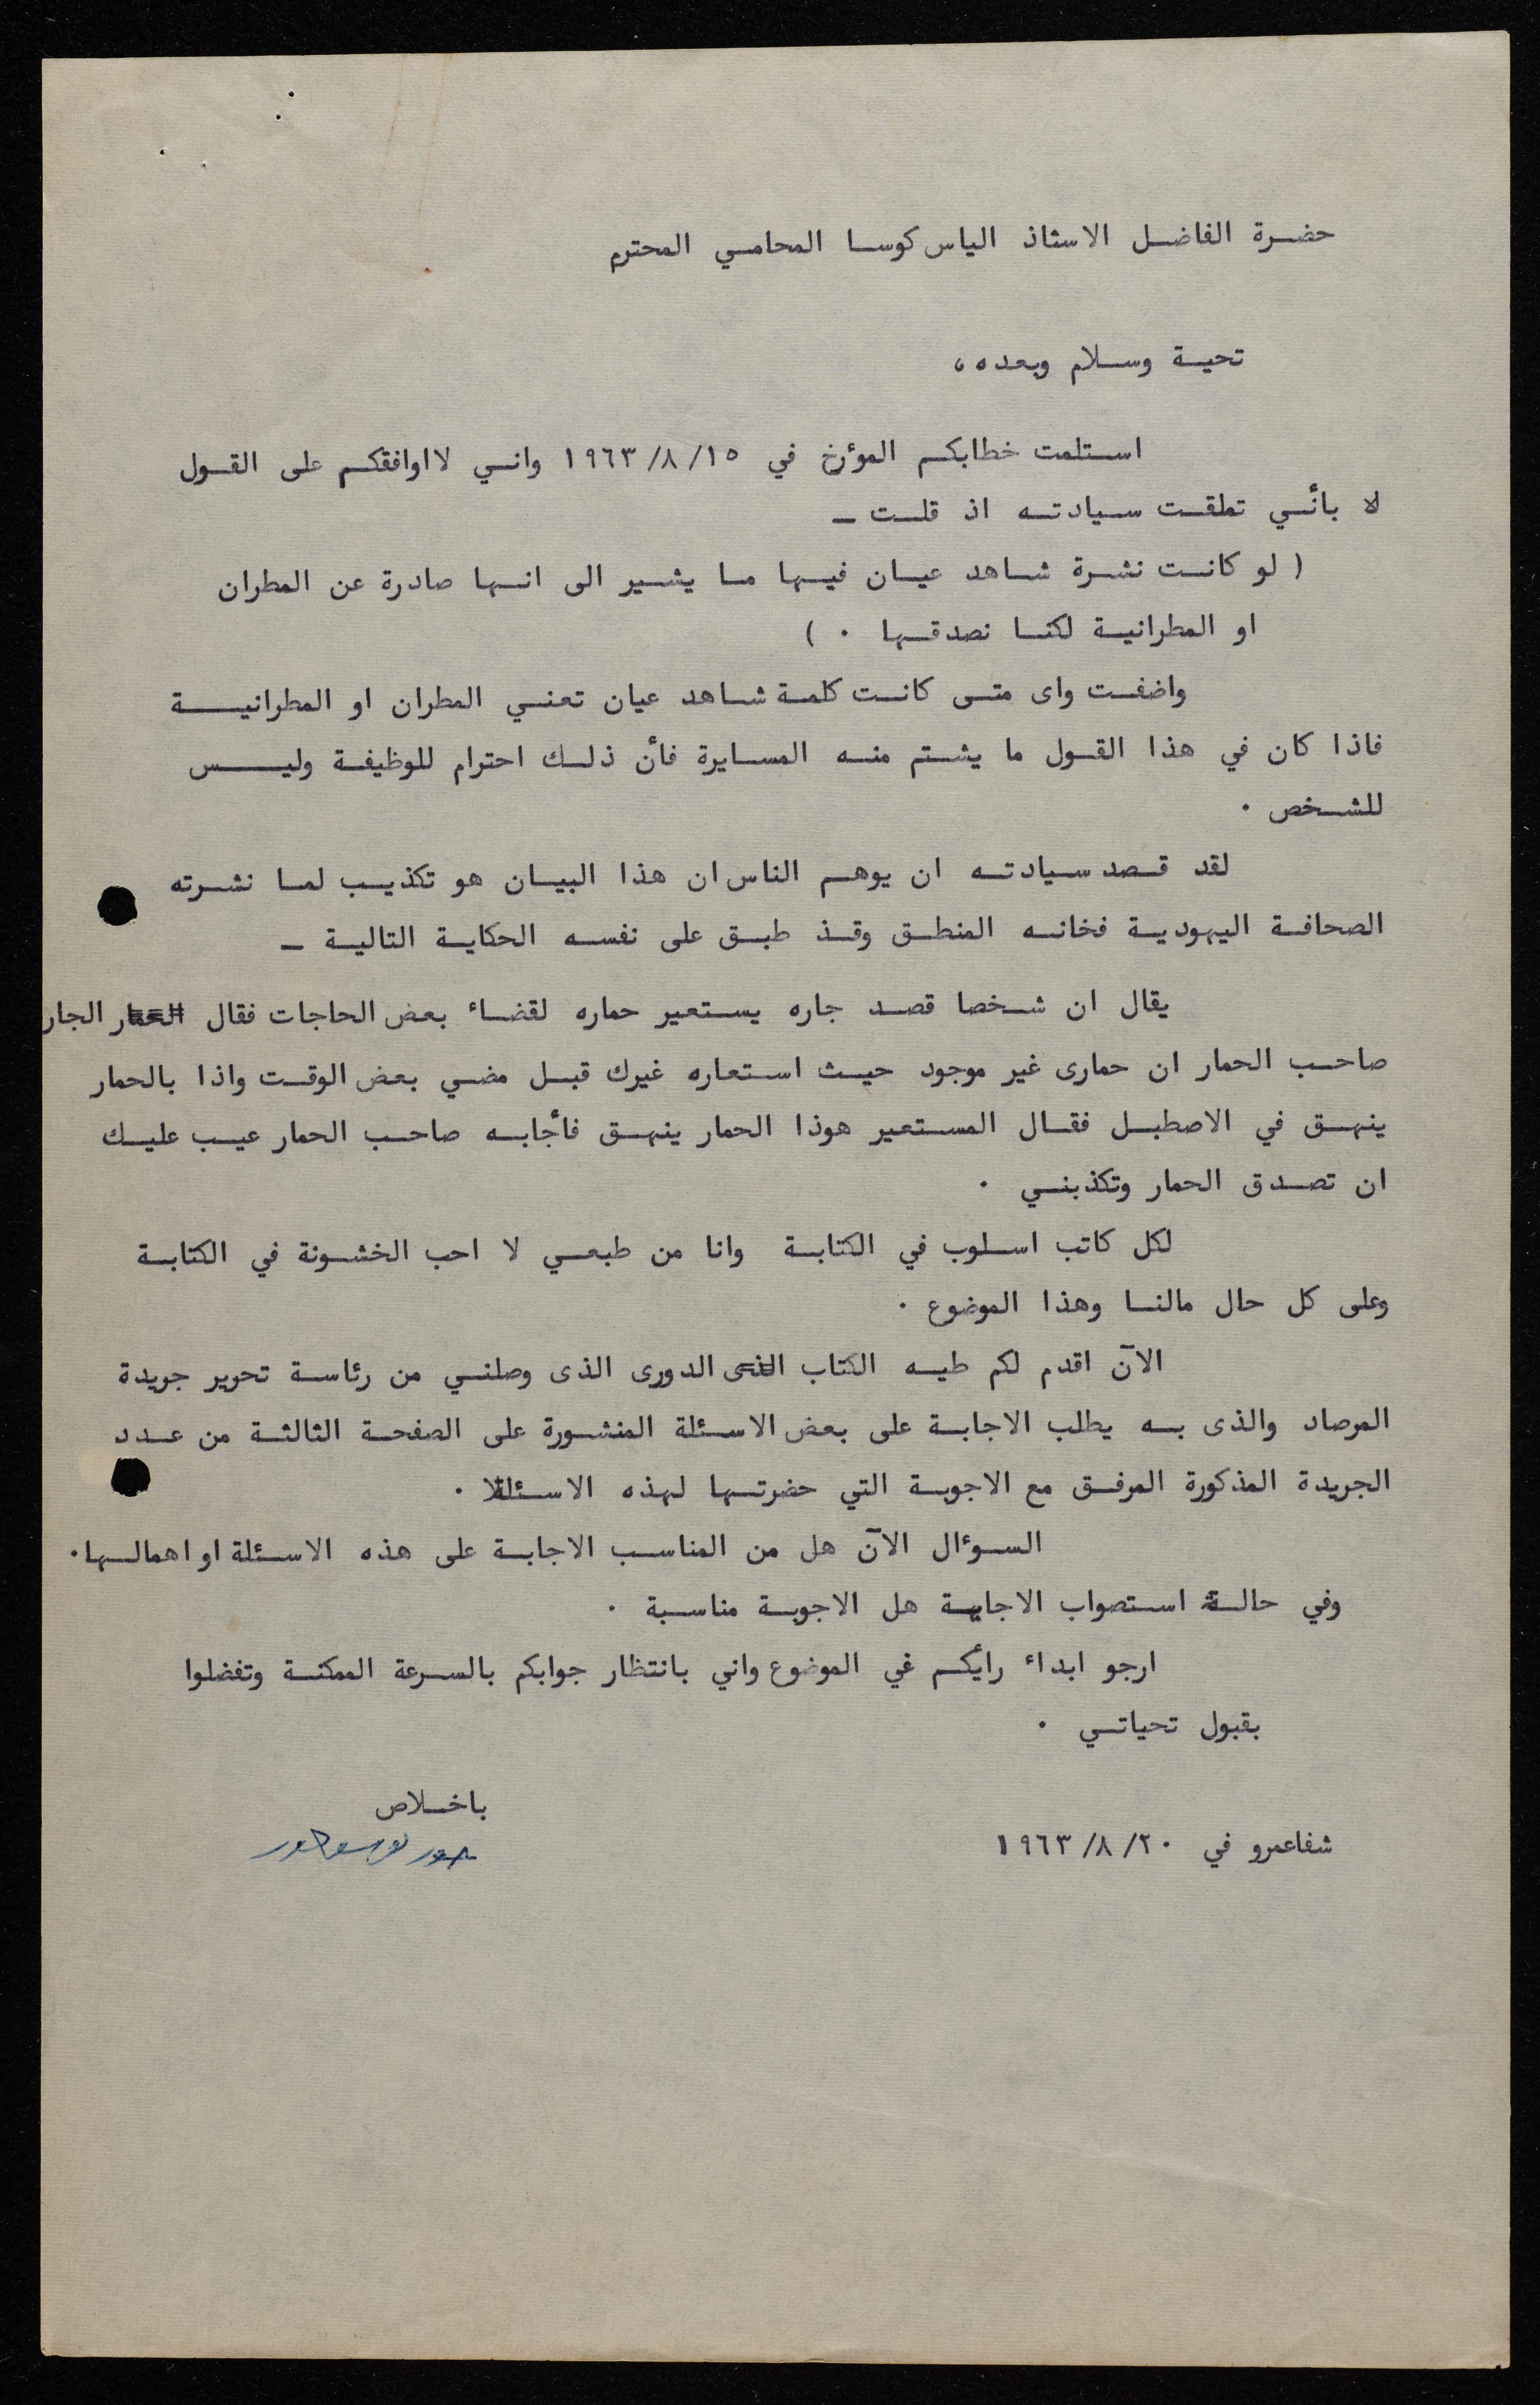 حضرة الفاضل الاستاذ الياس كوسا المحامي المحترم
تحية وسلام وبعده ،
استلمت خطابكم المؤرخ في ١٥/٨/١٩٦٣ واني لااوافقكم على القول
لا بأني تملقت سيادته اذ قلت ـ
( لو كانت نشرة شاهد عيان فيها ما يشير الى انها صادرة عن المطران
او المطرانية لكنا نصدقها . )
واضفت واى متى كانت كلمة شاهد عيان تعني المطران او المطرانية
فاذا كان في هذا القول ما يشتم منه المسايرة فأن ذلك احترام للوظيفة وليس
للشخص .
لقد قصد سيادته ان يوهم الناس ان هذا البيان هو تكذيب لما نشرته
الصحافة اليهودية فخانه المنطق وقذ طبق على نفسه الحكاية التالية ـ
يقال ان شخصا قصد جاره يستعير حماره لقضاء بعض الحاجات فقال الجار
صاحب الحمار ان حمارى غير موجود حيث استعاره غيرك قبل مضي بعض الوقت واذا بالحمار
ينهق في الاصطبل فقال المستعير هوذا الحمار ينهق فأجابه صاحب الحمار عيب عليك
ان تصدق الحمار وتكذبني .
لكل كاتب اسلوب في الكتابة وانا من طبعي لا احب الخشونة في الكتابة
وعلى كل حال مالنا وهذا الموضوع .
الآن اقدم لكم طيه الكتاب الدورى الذى وصلني من رئاسة تحرير جريدة
المرصاد والذى به يطلب الاجابة على بعض الاسئلة المنشورة على الصفحة الثالثة من عدد
الجريدة المذكورة المرفق مع الاجوبة التي حضرتها لهذه الاسئلة .
السوءال الآن هل من المناسب الاجابة على هذه الاسئلة او اهمالها .
وفي حالة استصواب الاجابة هل الاجوبة مناسبة .
ارجو ابداء رأيكم غي الموضوع واني بانتظار جوابكم بالسرعة الممكنة وتفضلوا
بقبول تحياتي .
باخلاص
شفاعمرو في ٢٠/٨/١٩٦٣